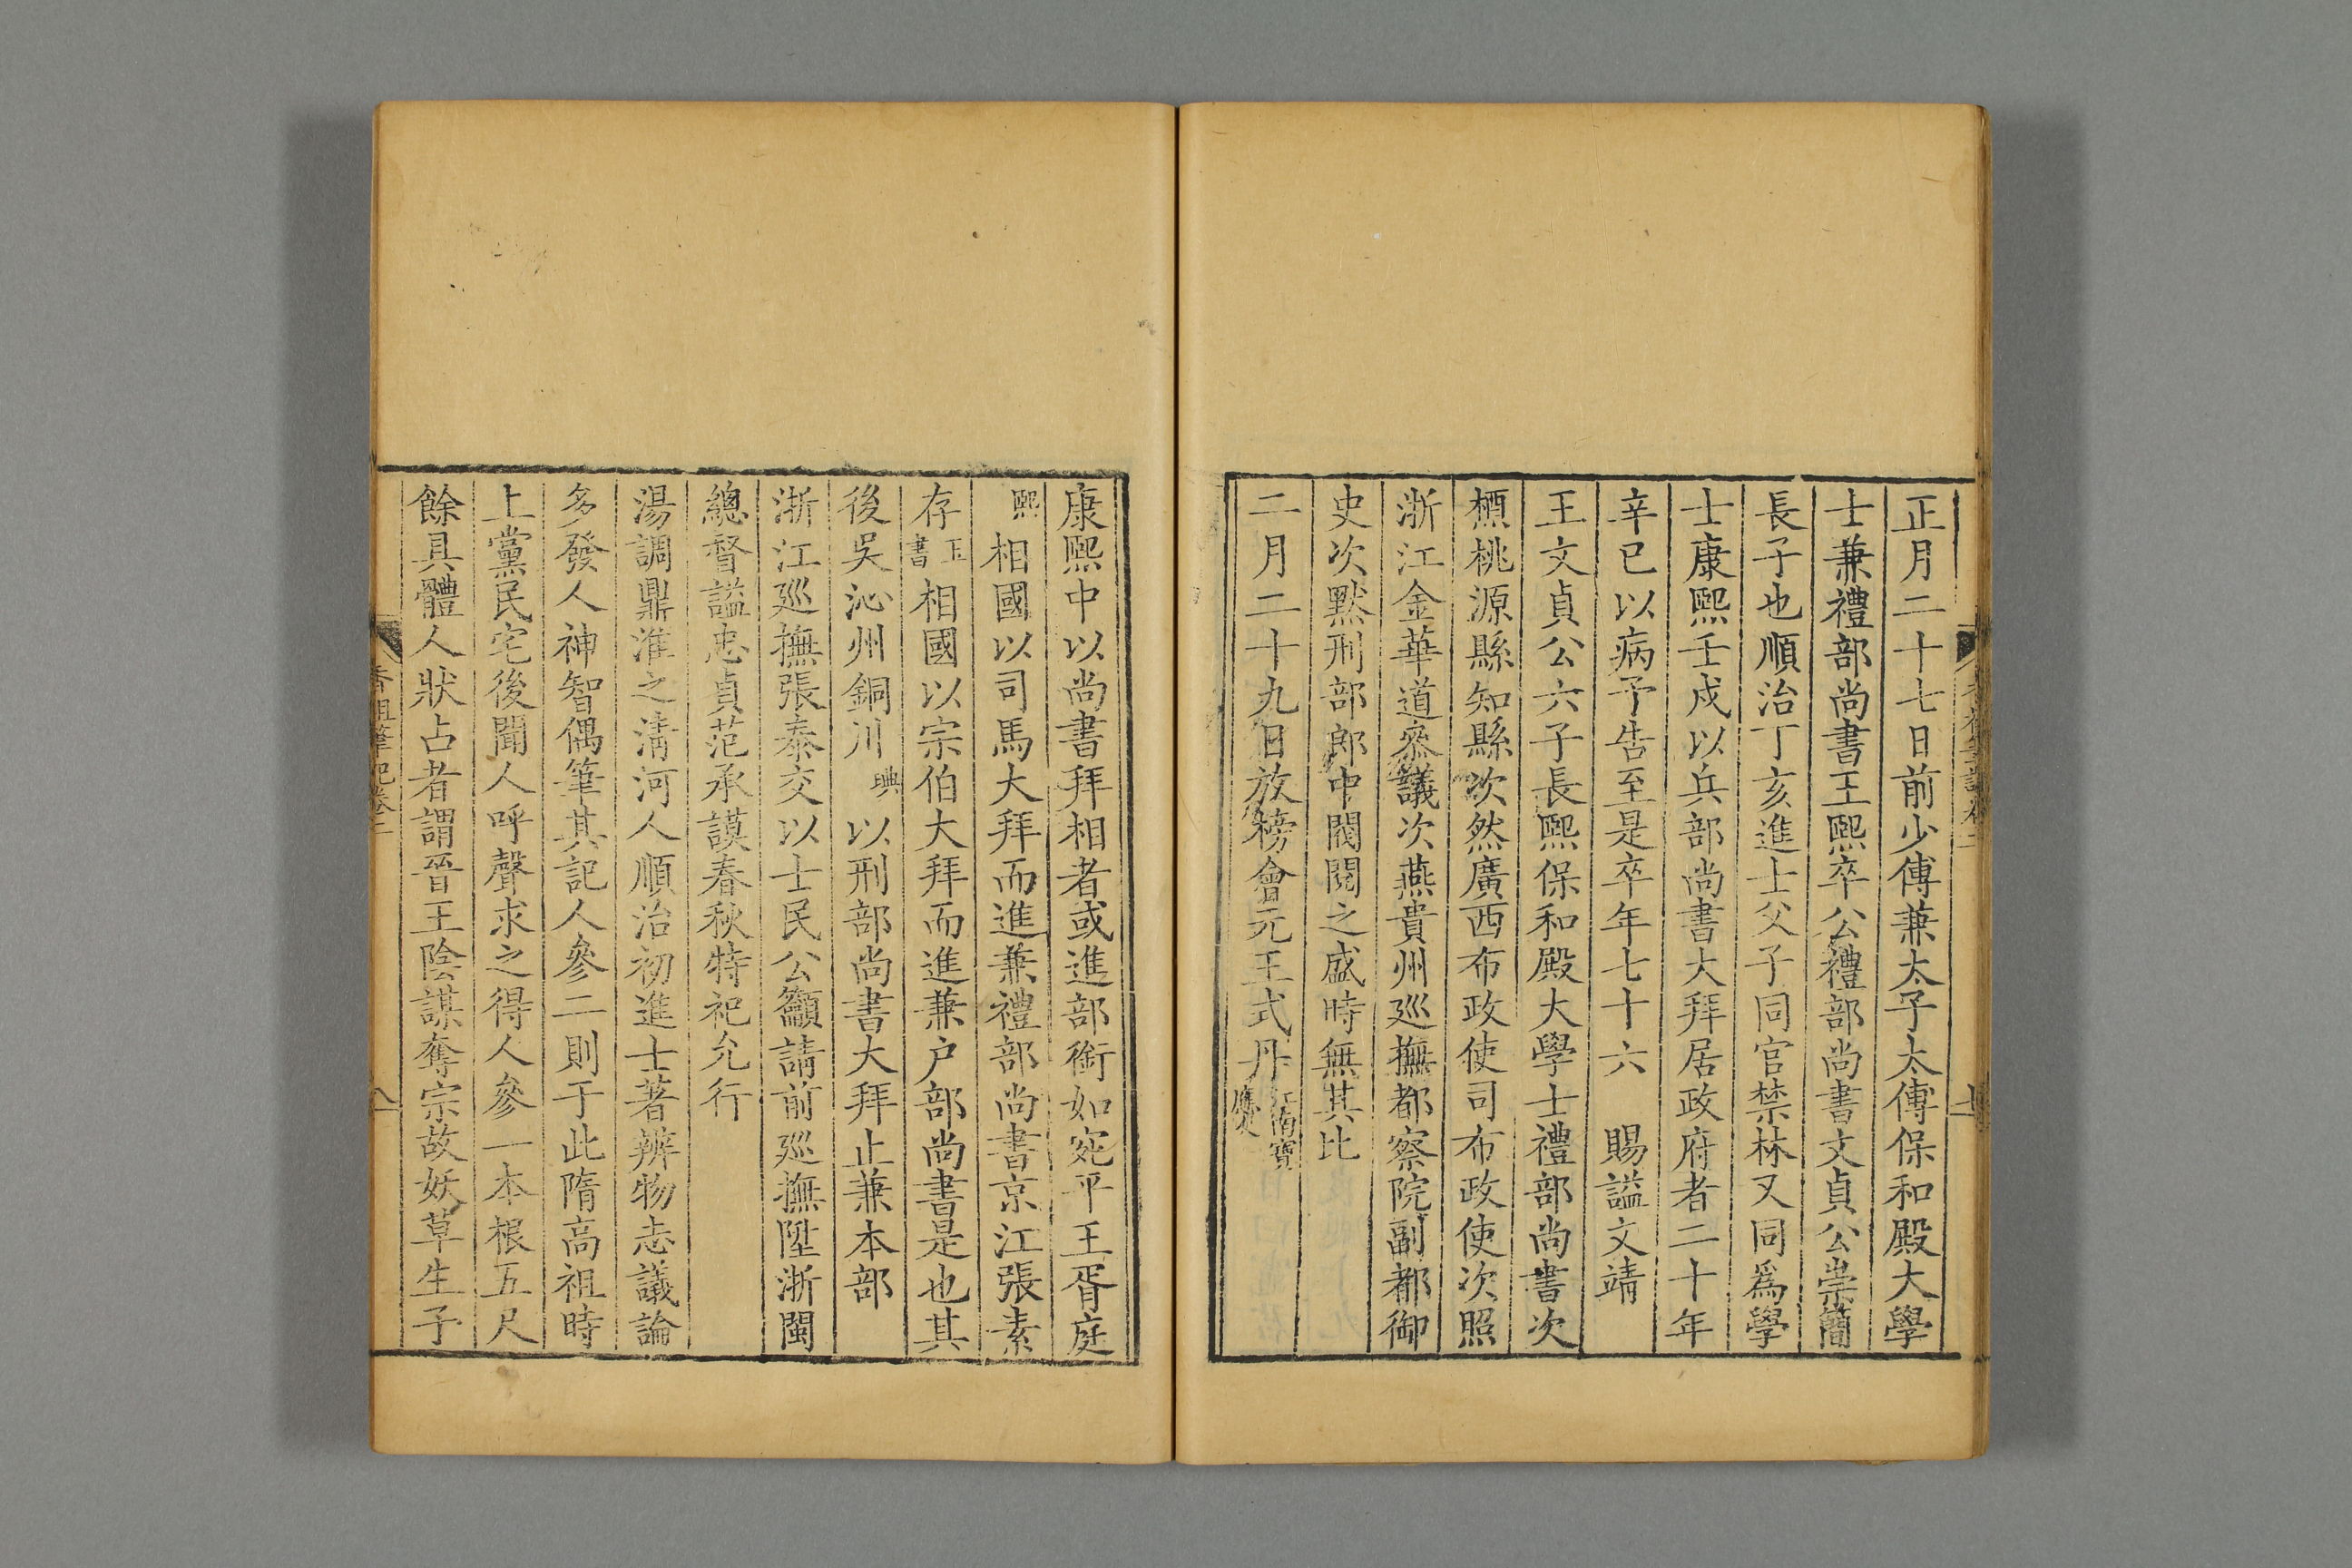 正月二十七日前少傅兼太子太傅保和殿大學
士兼禮部尚書王熙卒公禮部尚書文貞公崇簡
長子也順治丁亥進士父子同官禁林又同爲學
士康熙壬戌以兵部尚書大拜居政府者二十年
辛巳以病予告至是卒年七十六 賜謚文靖
王文貞公六子長熙保和殿大學士禮部尚書次
槱桃源縣知縣次然廣西布政使司布政使次照
浙江金華道叅議次燕貴州巡撫都察院副都御
史次默刑部郎中閥閱之盛時無其比
二月二十九日放榜會元王式丹江南寶應人
康熙中以尚書拜相者或進部銜如宛平王胥庭
熙相國以司馬大拜而進兼禮部尚書京江張素
存玉書相國以宗伯大拜而進兼户部尚書是也其
後吳沁州銅川琠以刑部尚書大拜止兼本部
浙江巡撫張泰交以士民公籲請前巡撫陞浙閩
總督謚忠貞范承謨春秋特祀允行
湯調鼎淮之清河人順治初進士著辨物志議論
多發人神智偶筆其記人參二則于此隋高祖時
上黨民宅後聞人呼聲求之得人參一本根五尺
餘具體人狀占者謂晉王陰謀奪宗故妖草生子
香祖筆記卷二
八